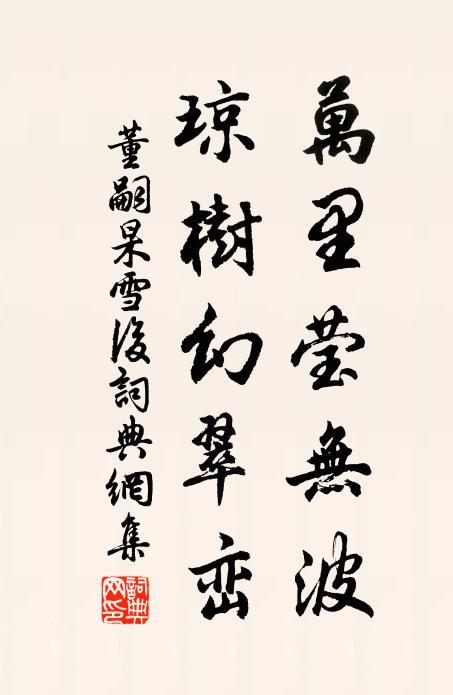 萬里莹無波
琼樹幻翠峦
董嗣杲雪後詞典網集
詞典网印